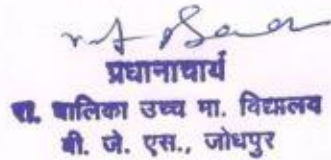 प्रधानाचार्य
रा. बालिका उच्च मा. विद्यालय
बी. जे. एस., जोधपुर